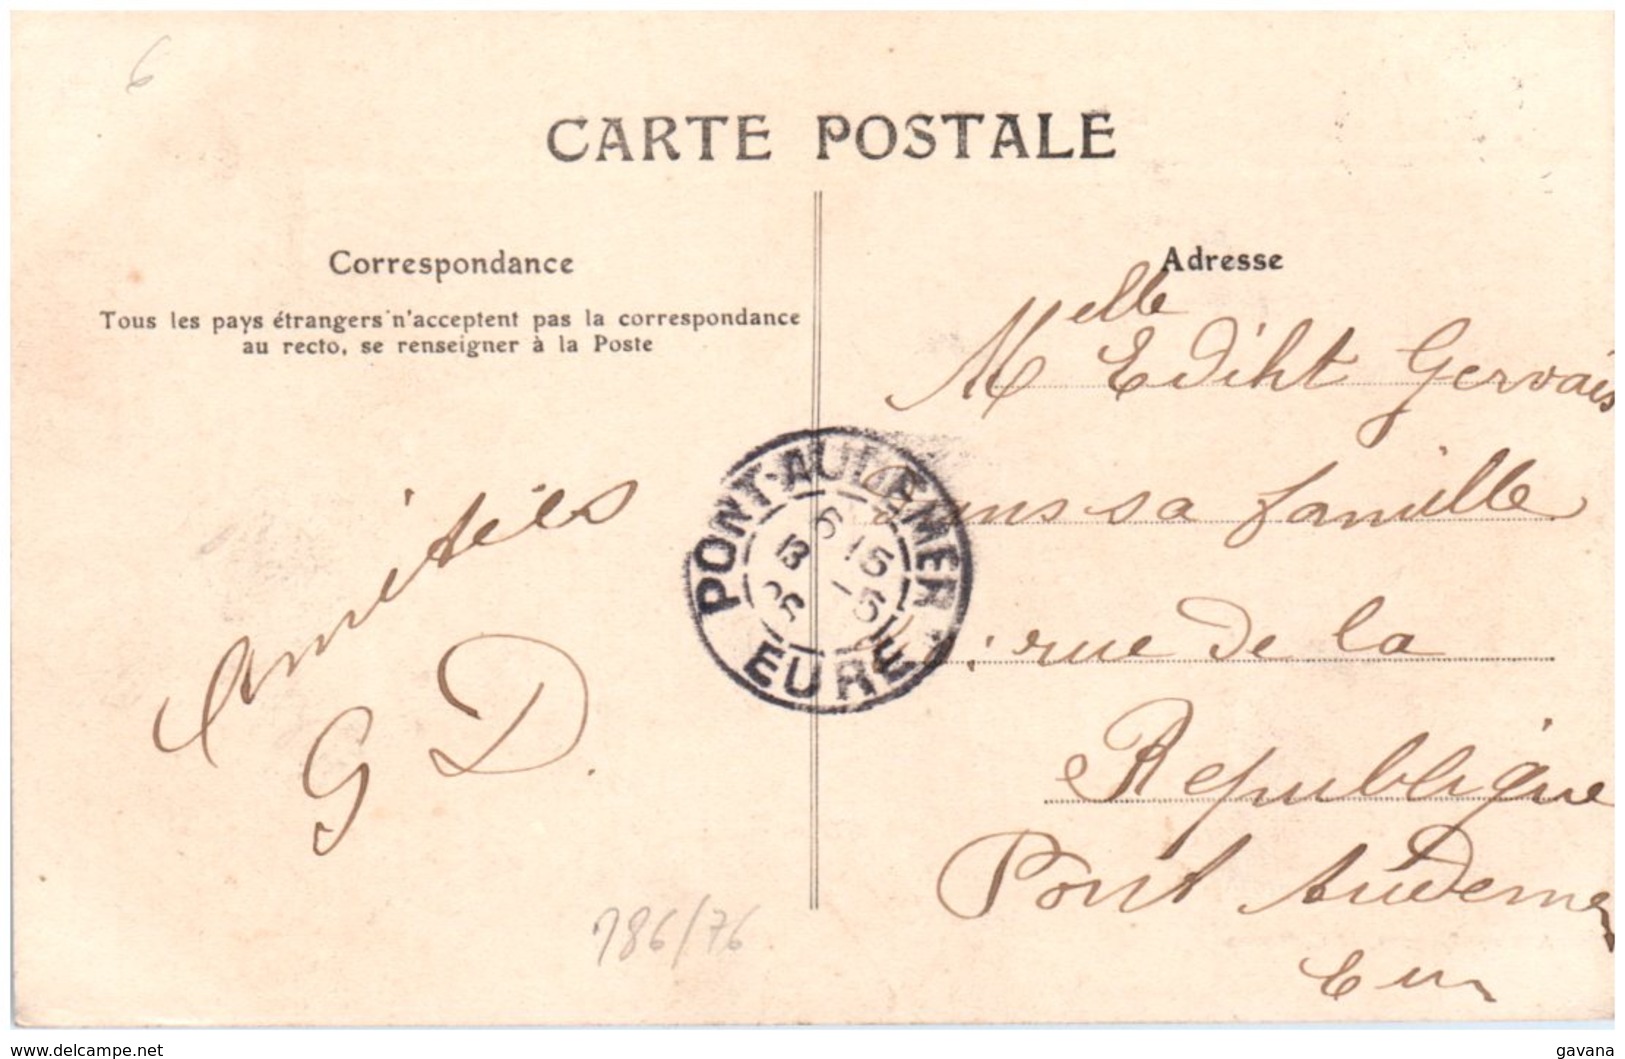 6
CARTE POSTALE
Correspondance
Tous les pays étrangers n'acceptent pas la correspondance
au recto, se renseigner à la Poste
Amitiés
G D.
786/76
PONT-AUDEMER
EURE
Adresse
Melle Ediht Gervais
dans sa famille
rue de la
Republique
Pont Audemer
Eure
www.delcampe.net
gavana